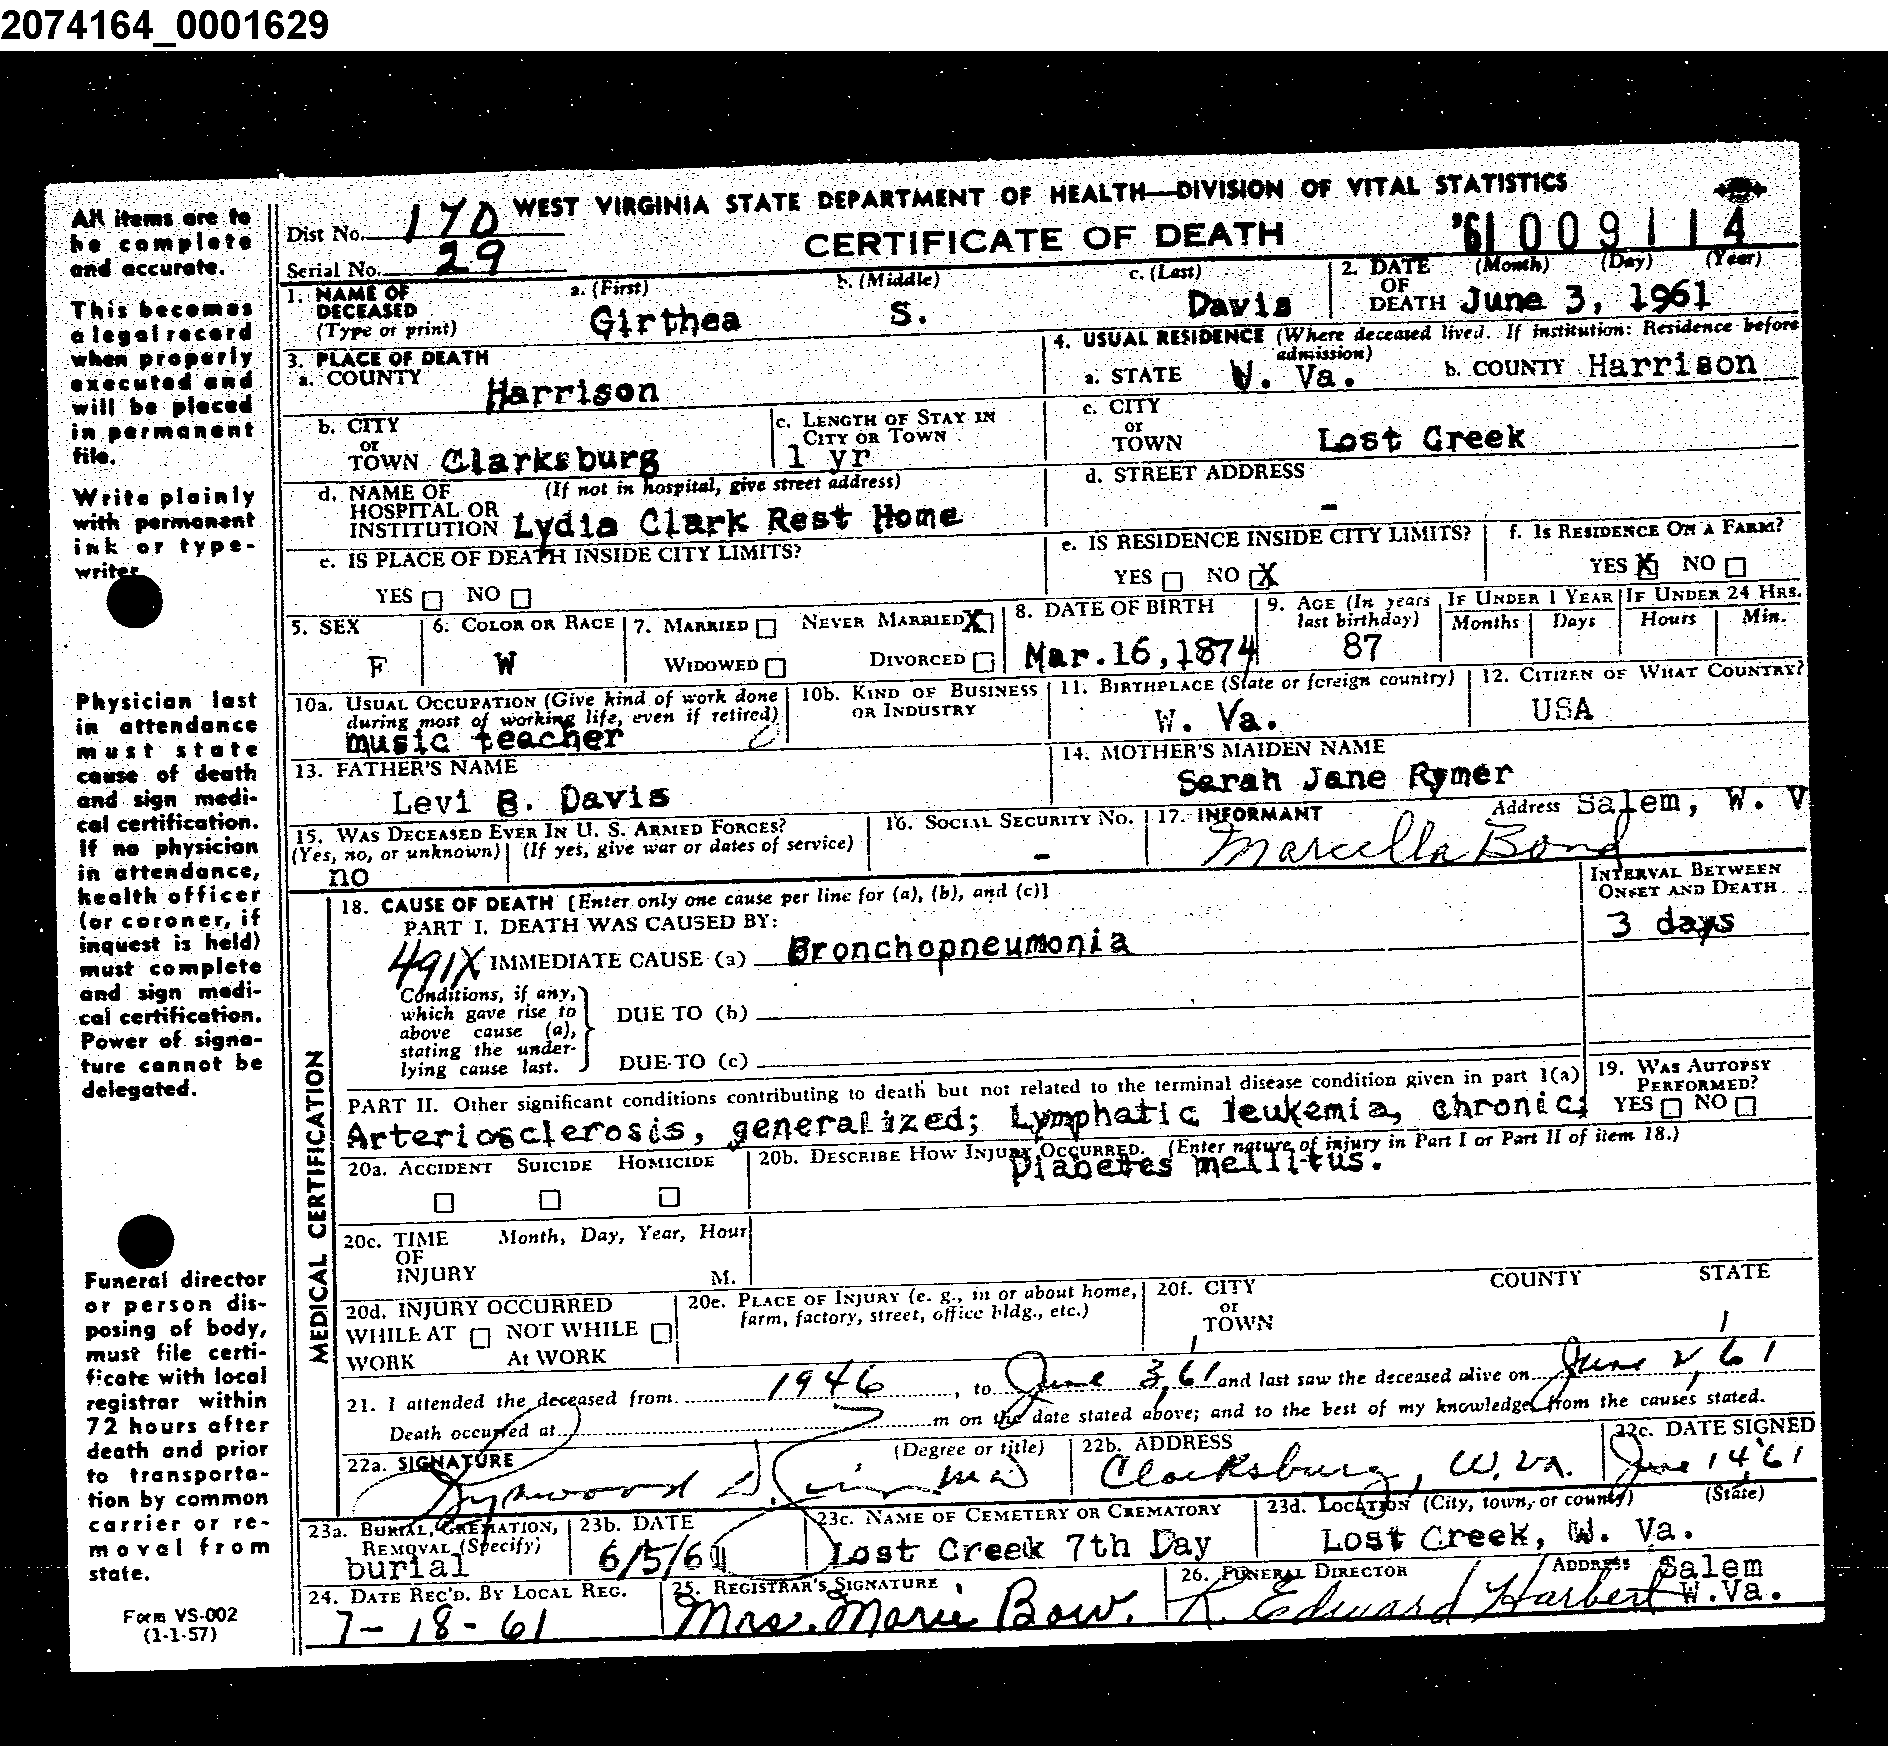 2074164_0001629
All items are to
be complete
and accurate.
This becomes
a legal record
when properly
executed and
will be placed
in permanent
file.
Write plainly
with permanent
ink or type-
writer
Physician last
in attendance
must state
cause of death
and sign medi-
cal certification.
If no physician
in attendance,
health officer
(or coroner, if
inquest is held)
must complete
and sign medi-
cal certification.
Power of signa-
ture cannot be
delegated.
Funeral director
or person dis-
posing of body,
must file certi-
ficate with local
registrar within
72 hours after
death and prior
to transporta-
tion by common
carrier or re-
moval from
state.
Form VS-002
(1-1-57)
WEST VIRGINIA STATE DEPARTMENT OF HEALTH—DIVISION OF VITAL STATISTICS
Dist No. 170
Serial No. 29
CERTIFICATE OF DEATH
'61 009114
1. NAME OF DECEASED (Type or print)
a. (First) b. (Middle) c. (Last)
Girthea S. Davis
2. DATE OF DEATH (Month) (Day) (Year)
June 3, 1961
3. PLACE OF DEATH
a. COUNTY
Harrison
4. USUAL RESIDENCE (Where deceased lived. If institution: Residence before admission)
a. STATE W. Va. b. COUNTY Harrison
b. CITY or TOWN Clarksburg
c. LENGTH OF STAY IN CITY OR TOWN
1 yr
c. CITY or TOWN Lost Creek
d. NAME OF HOSPITAL OR INSTITUTION (If not in hospital, give street address)
Lydia Clark Rest Home
d. STREET ADDRESS
-
e. IS PLACE OF DEATH INSIDE CITY LIMITS?
YES NO
e. IS RESIDENCE INSIDE CITY LIMITS?
YES NO X
f. IS RESIDENCE ON A FARM?
YES X NO
5. SEX
F
6. COLOR OR RACE
W
7. MARRIED NEVER MARRIED X
WIDOWED DIVORCED
8. DATE OF BIRTH
Mar.16,1874
9. AGE (In years last birthday)
87
IF UNDER 1 YEAR
Months Days
IF UNDER 24 HRS.
Hours Min.
10a. USUAL OCCUPATION (Give kind of work done during most of working life, even if retired)
music teacher
10b. KIND OF BUSINESS OR INDUSTRY
11. BIRTHPLACE (State or foreign country)
W. Va.
12. CITIZEN OF WHAT COUNTRY?
USA
13. FATHER'S NAME
Levi B. Davis
14. MOTHER'S MAIDEN NAME
Sarah Jane Rymer
15. WAS DECEASED EVER IN U. S. ARMED FORCES?
(Yes, no, or unknown) (If yes, give war or dates of service)
no
16. SOCIAL SECURITY NO.
-
17. INFORMANT Address Salem, W. V
Marcella Bond
MEDICAL CERTIFICATION
18. CAUSE OF DEATH [Enter only one cause per line for (a), (b), and (c)]
INTERVAL BETWEEN ONSET AND DEATH
PART I. DEATH WAS CAUSED BY:
491X IMMEDIATE CAUSE (a) Bronchopneumonia
3 days
Conditions, if any,
which gave rise to
above cause (a),
stating the under-
lying cause last.
DUE TO (b)
DUE TO (c)
PART II. Other significant conditions contributing to death but not related to the terminal disease condition given in part 1(a)
Arteriosclerosis, generalized; Lymphatic leukemia, chronic;
Diabetes mellitus.
19. WAS AUTOPSY PERFORMED?
YES NO
20a. ACCIDENT SUICIDE HOMICIDE
20b. DESCRIBE HOW INJURY OCCURRED. (Enter nature of injury in Part I or Part II of item 18.)
20c. TIME OF INJURY Month, Day, Year, Hour
M.
20d. INJURY OCCURRED
WHILE AT WORK NOT WHILE At WORK
20e. PLACE OF INJURY (e. g., in or about home, farm, factory, street, office bldg., etc.)
20f. CITY or TOWN COUNTY STATE
21. I attended the deceased from 1946, to June 3, 61 and last saw the deceased alive on June 2, 61
Death occurred at m on the date stated above; and to the best of my knowledge, from the causes stated.
22a. SIGNATURE (Degree or title)
MD
22b. ADDRESS
Clarksburg, W. Va.
22c. DATE SIGNED
June 14 '61
23a. BURIAL, CREMATION, REMOVAL (Specify)
burial
23b. DATE
6/5/61
23c. NAME OF CEMETERY OR CREMATORY
Lost Creek 7th Day
23d. LOCATION (City, town, or county) (State)
Lost Creek, W. Va.
24. DATE REC'D. BY LOCAL REG.
7-18-61
25. REGISTRAR'S SIGNATURE
Mrs. Marie Bow.
26. FUNERAL DIRECTOR ADDRESS Salem
R. Edward Harbert W.Va.